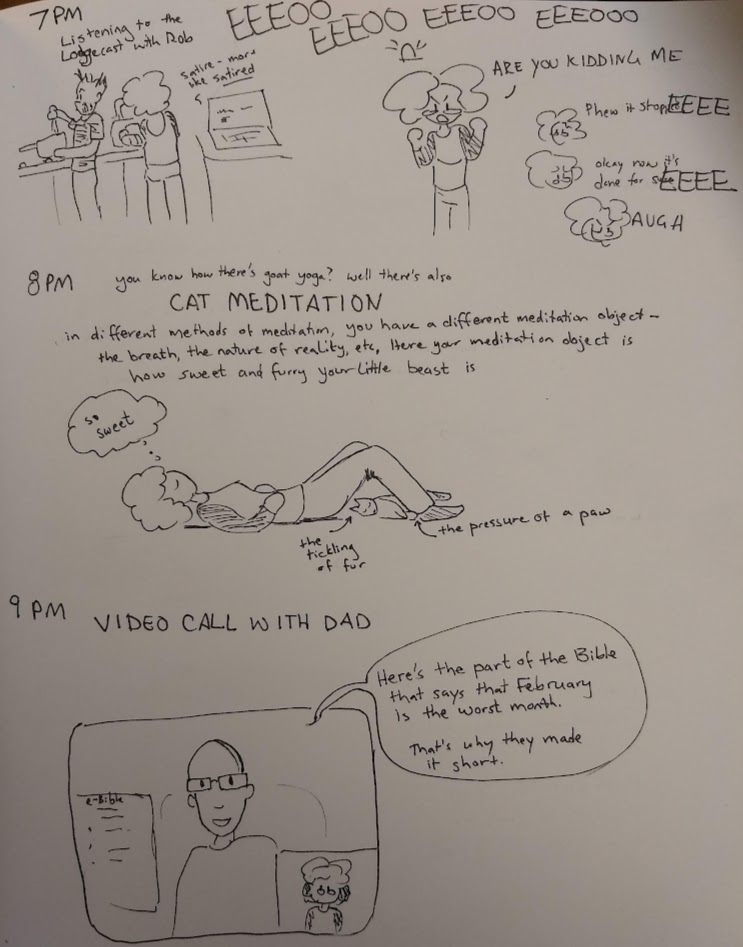 7PM
Listening to the
Lodgecast with Rob
EEEOO
EEEOO EEEOO EEEOOO
satire - more
like satired
ARE YOU KIDDING ME
Phew it stopEEEE
okay now it's
done for sEEEE
AUGH
8PM
you know how there's goat yoga? well there's also
CAT MEDITATION
in different methods of meditation, you have a different meditation object -
the breath, the nature of reality, etc, Here your meditation object is
how sweet and furry your little beast is
so
sweet
the
tickling
of fur
the pressure of a paw
9 PM
VIDEO CALL WITH DAD
Here's the part of the Bible
that says that February
is the worst month.
That's why they made
it short.
e-Bible